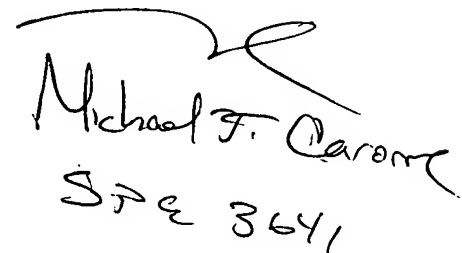 Michael F. Carone
SPE 3641